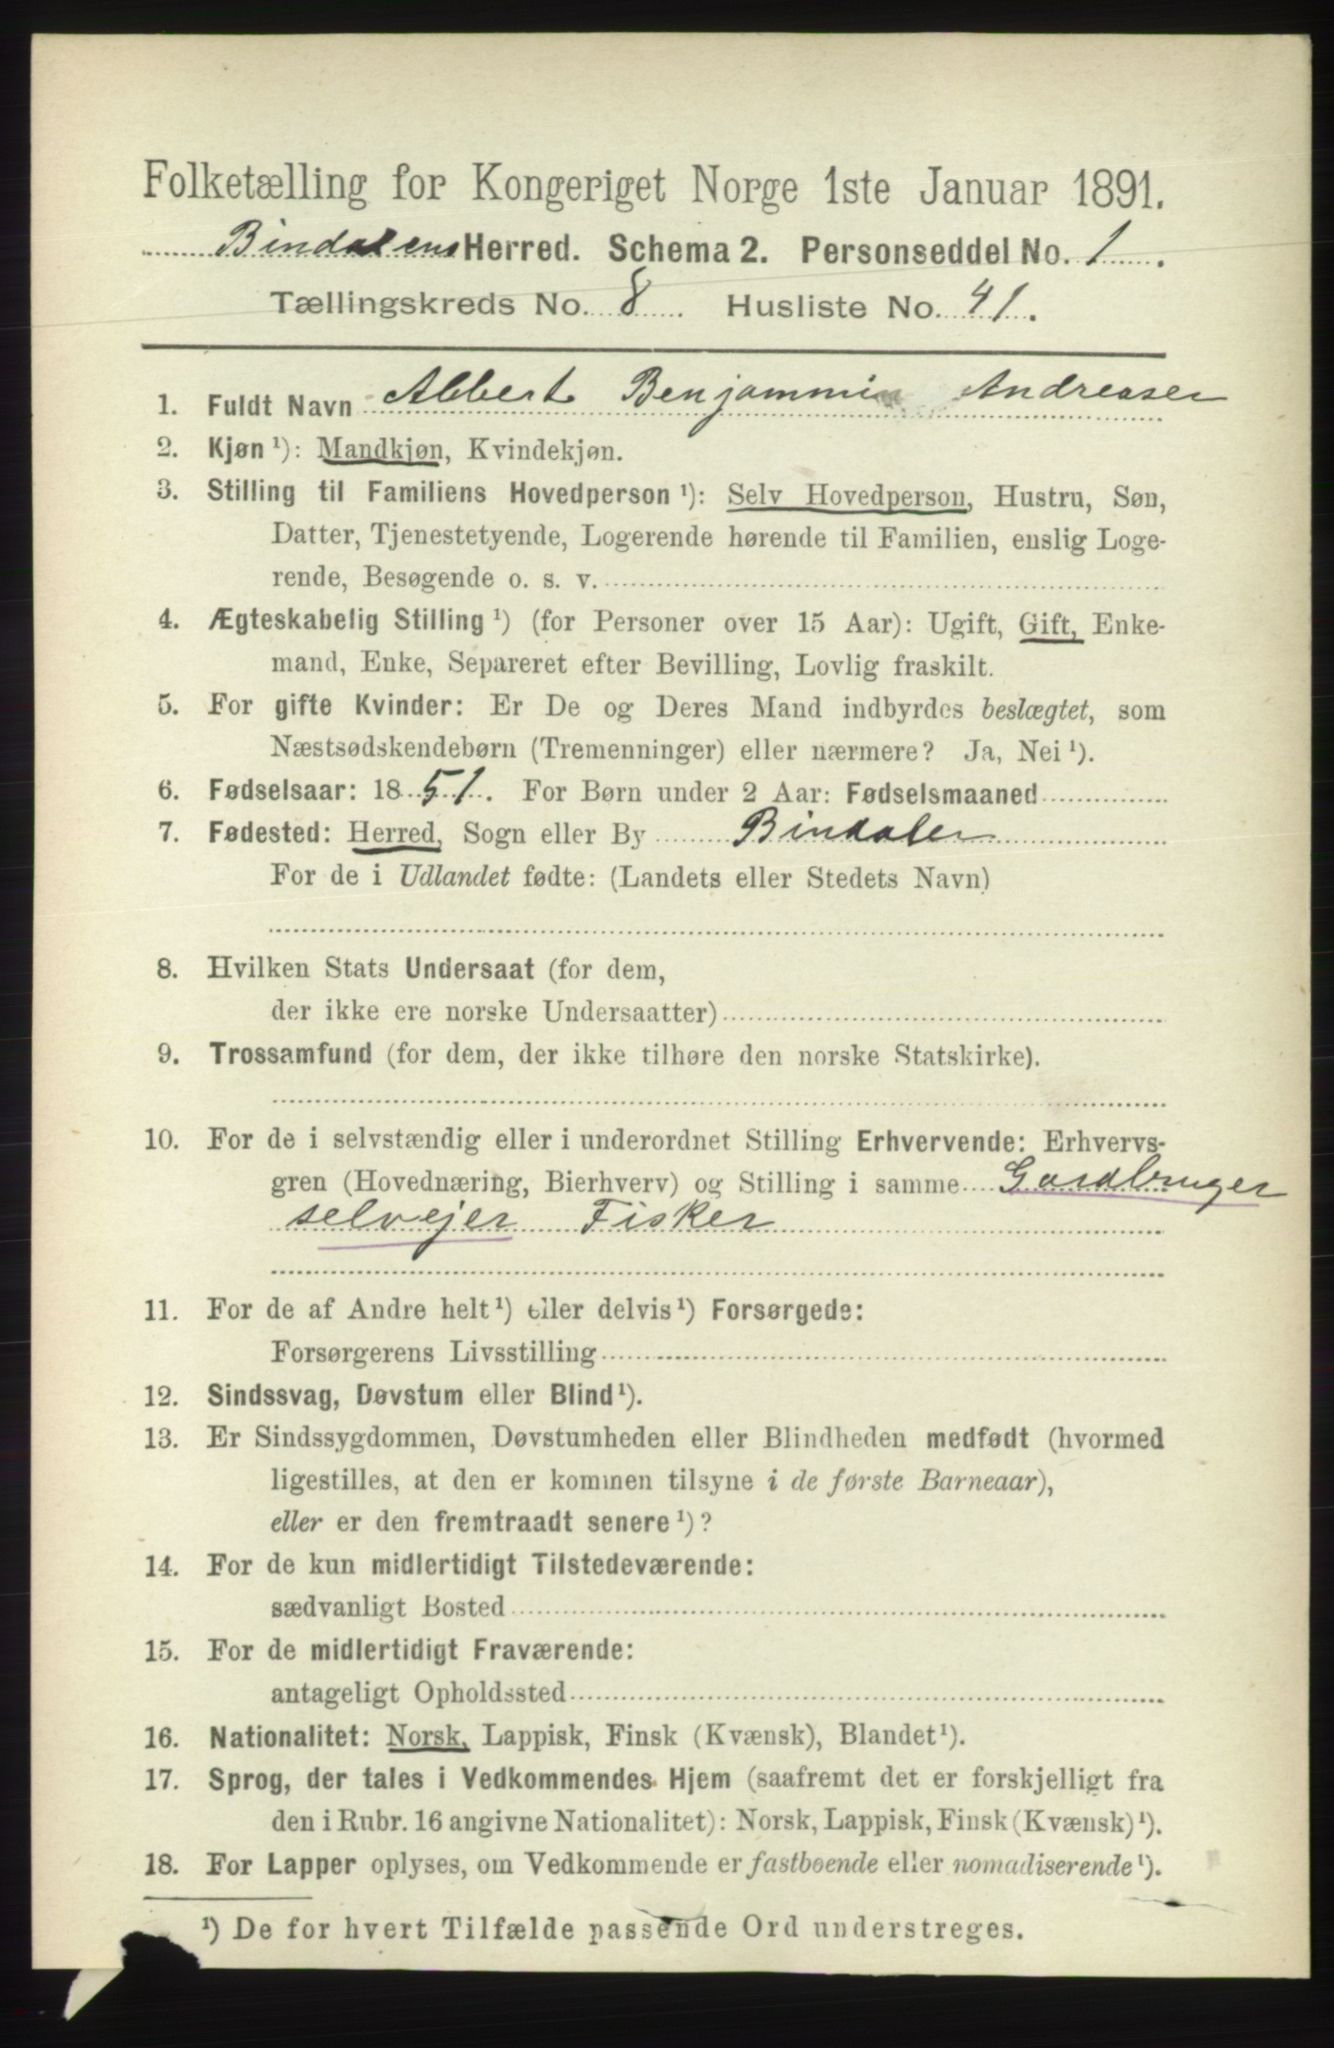 Folketælling for Kongeriget Norge 1ste Januar 1891.
Bindalens Herred. Schema 2. Personseddel No. 1.
Tællingskreds No. 8. Husliste No. 41.
1. Fuldt Navn Albert Benjammin Andreasen
2. Kjøn ¹): Mandkjøn, Kvindekjøn.
3. Stilling til Familiens Hovedperson ¹): Selv Hovedperson, Hustru, Søn,
Datter, Tjenestetyende, Logerende hørende til Familien, enslig Loge-
rende, Besøgende o. s. v.
4. Ægteskabelig Stilling ¹) (for Personer over 15 Aar): Ugift, Gift, Enke-
mand, Enke, Separeret efter Bevilling, Lovlig fraskilt.
5. For gifte Kvinder: Er De og Deres Mand indbyrdes beslægtet, som
Næstsødskendebørn (Tremenninger) eller nærmere? Ja, Nei ¹).
6. Fødselsaar: 1851. For Børn under 2 Aar: Fødselsmaaned
7. Fødested: Herred, Sogn eller By Bindalen
For de i Udlandet fødte: (Landets eller Stedets Navn)
8. Hvilken Stats Undersaat (for dem,
der ikke ere norske Undersaatter)
9. Trossamfund (for dem, der ikke tilhøre den norske Statskirke).
10. For de i selvstændig eller i underordnet Stilling Erhvervende: Erhvervs-
gren (Hovednæring, Bierhverv) og Stilling i samme Gardbruger
selvejer Fisker
11. For de af Andre helt ¹) eller delvis ¹) Forsørgede:
Forsørgerens Livsstilling
12. Sindssvag, Døvstum eller Blind ¹).
13. Er Sindssygdommen, Døvstumheden eller Blindheden medfødt (hvormed
ligestilles, at den er kommen tilsyne i de første Barneaar),
eller er den fremtraadt senere ¹)?
14. For de kun midlertidigt Tilstedeværende:
sædvanligt Bosted
15. For de midlertidigt Fraværende:
antageligt Opholdssted
16. Nationalitet: Norsk, Lappisk, Finsk (Kvænsk), Blandet ¹).
17. Sprog, der tales i Vedkommendes Hjem (saafremt det er forskjelligt fra
den i Rubr. 16 angivne Nationalitet): Norsk, Lappisk, Finsk (Kvænsk) ¹).
18. For Lapper oplyses, om Vedkommende er fastboende eller nomadiserende ¹).
¹) De for hvert Tilfælde passende Ord understreges.